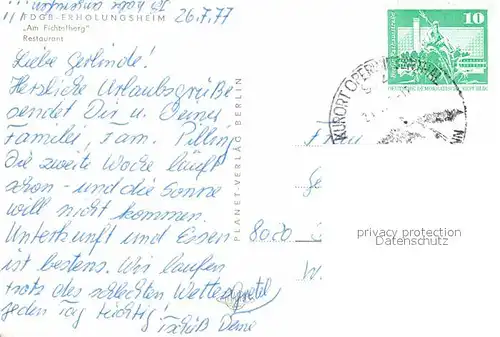 FDGB-ERHOLUNGSHEIM
„Am Fichtelberg"
Restaurant
26.7.77
Liebe Gerlinde!
Herzliche Urlaubsgrüße
sendet Dir u. Deiner
Familie, Fam. Pilling
Die zweite Woche läuft
schon - und die Sonne
will nicht kommen.
Unterkunft und Essen
ist bestens. Wir laufen
trotz des schlechten Wetters
jeden Tag tüchtig!
Tschüß Deine
PLANET-VERLAG BERLIN
10
KURORT OBERWIESENTHAL
Ge
8020
privacy protection
Datenschutz